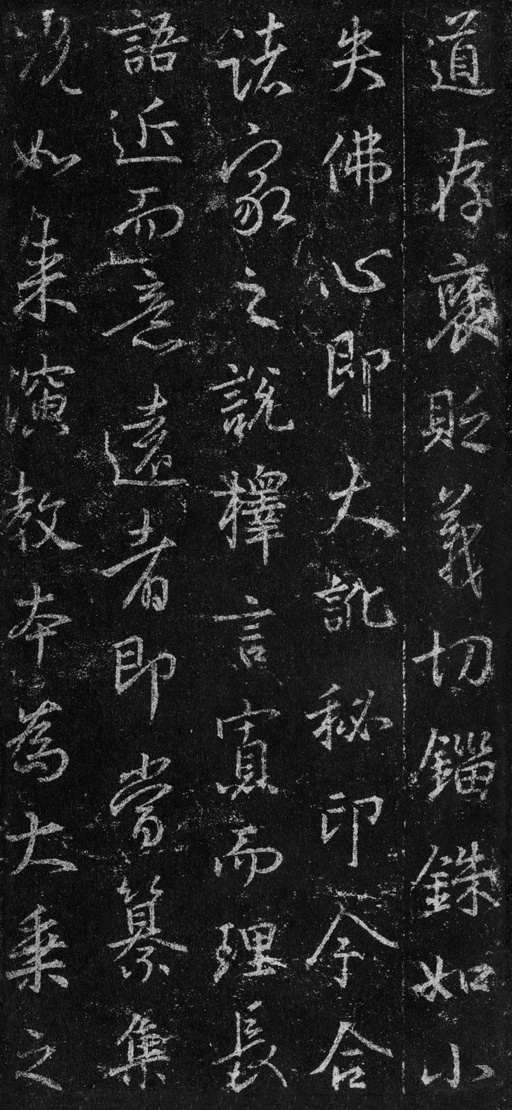 道存褒貶義切錙銖如小
失佛心即大訛秘印今合
諸家之說釋言寡而理長
語近而意遠者即當纂集
况如来演教本為大乘之